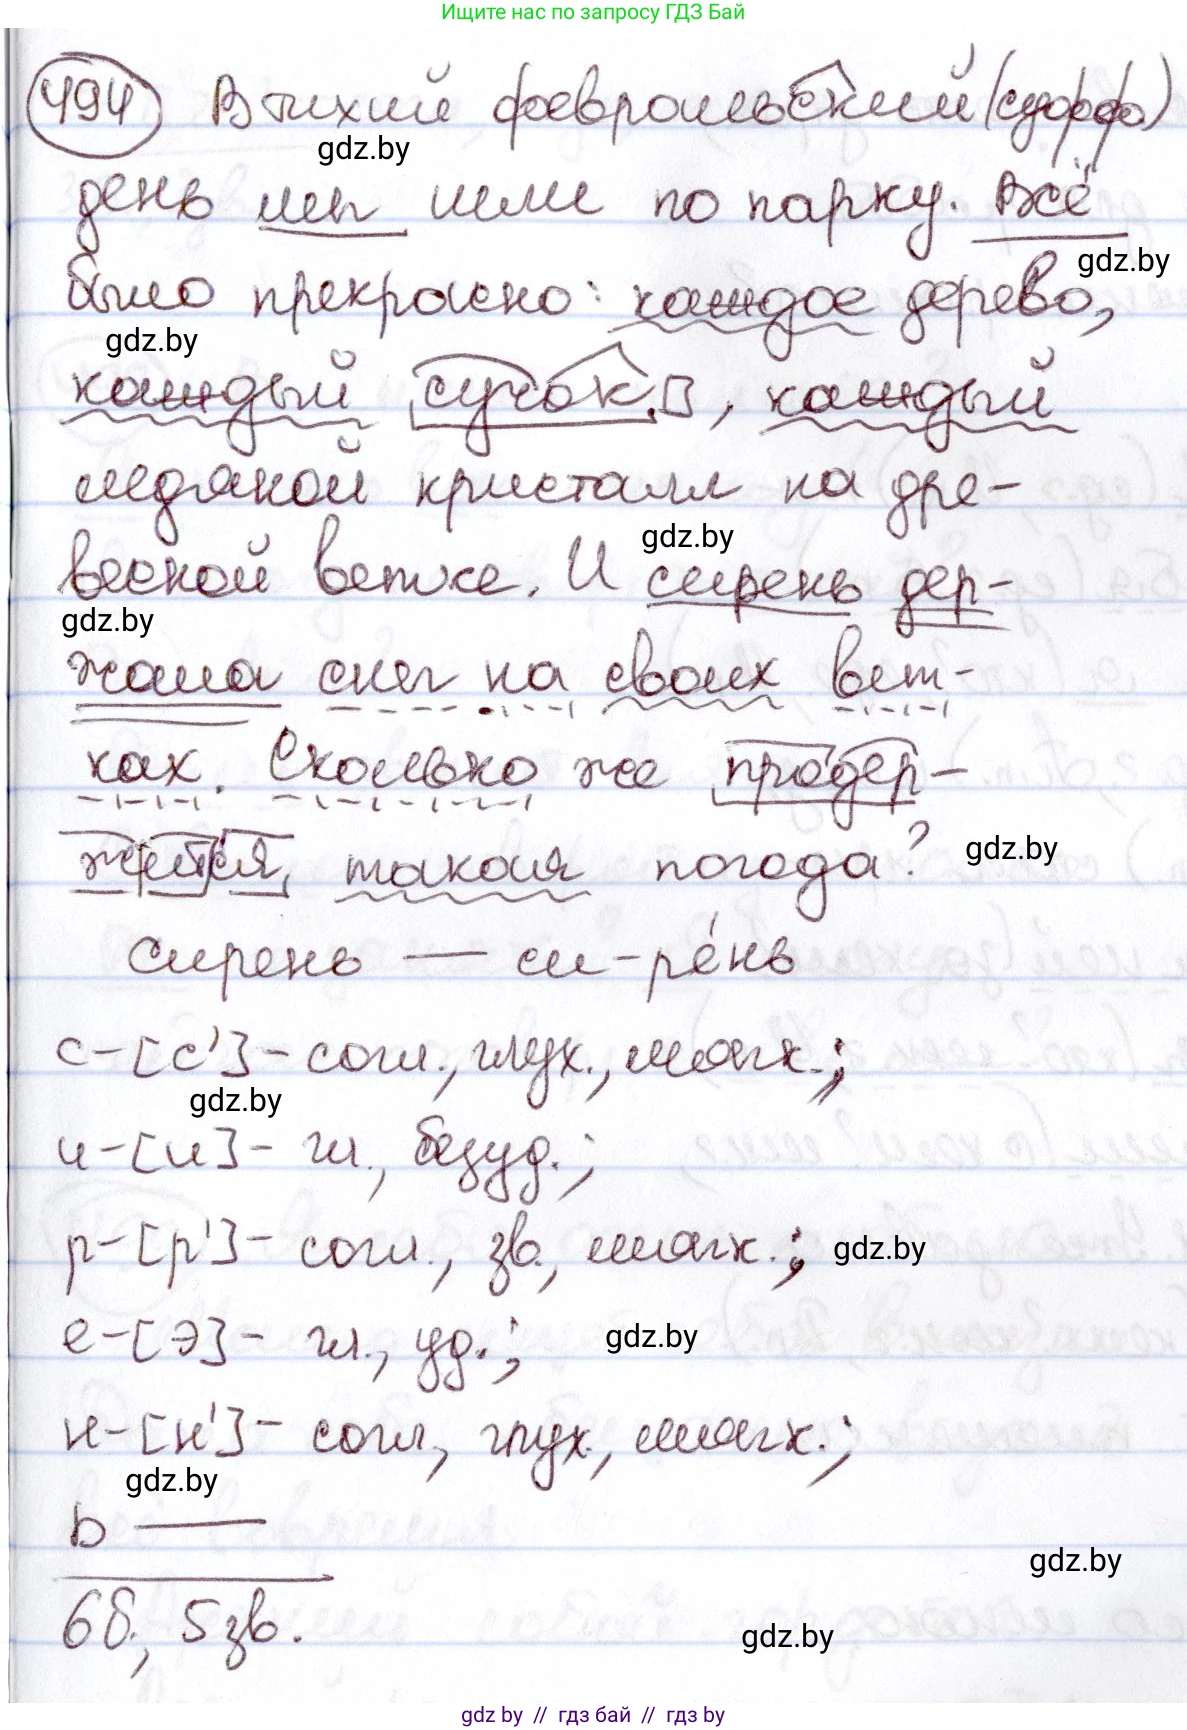 Ищите нас по запросу ГДЗ Бай
494 В тихий февральский (суфф.)
gdz.by
день мы шли по парку. Всё
gdz.by
было прекрасно: каждое дерево,
gdz.by
каждый сучок, каждый
ледяной кристалл на дре-
gdz.by
весной ветке. И сирень дер-
gdz.by
жала снег на своих вет-
ках. Сколько же продер-
жится такая погода?
gdz.by
Сирень — си-ре́нь
с-[с']- согл., глух., мягк.;
gdz.by
и-[и]- гл., безуд.;
р-[р']- согл., зв., мягк.;
gdz.by
е-[э]- гл., уд.;
gdz.by
н-[н']- согл., глух., мягк.;
gdz.by
ь —
gdz.by
6б., 5зв.
gdz.by
gdz by // гдз бай // gdz by